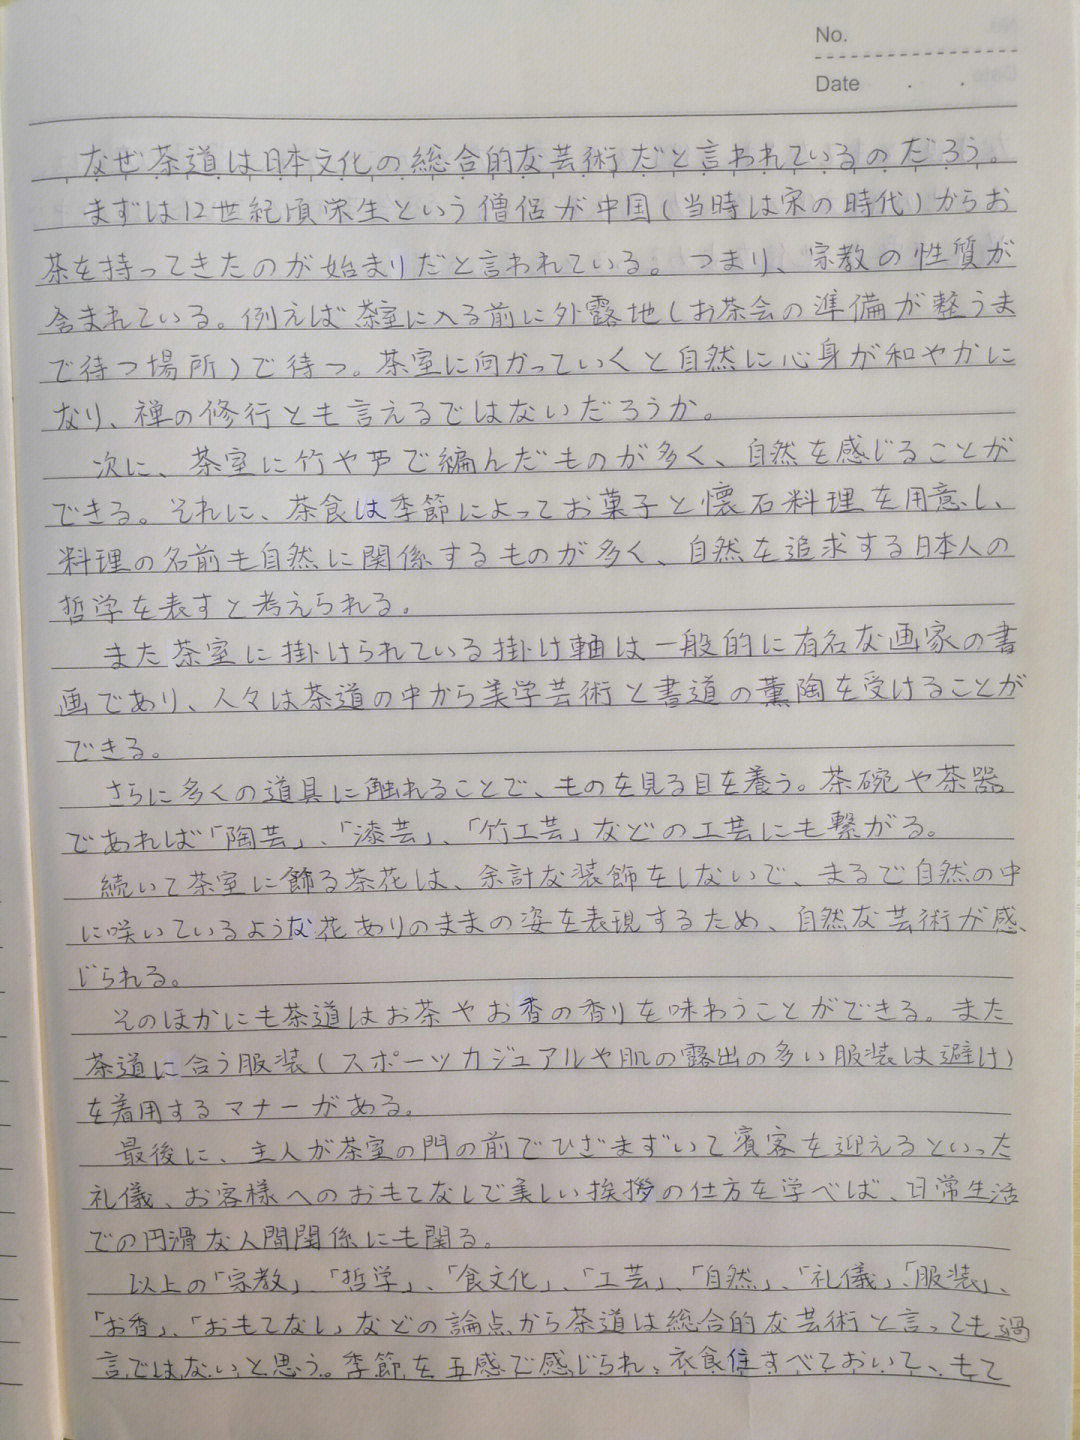 No.
Date . .
なぜ茶道は日本文化の総合的な芸術だと言われているのだろう。
まずは12世紀頃栄生という僧侶が中国(当時は宋の時代)からお
茶を持ってきたのが始まりだと言われている。つまり、宗教の性質が
含まれている。例えば茶室に入る前に外露地(お茶会の準備が整うま
で待つ場所)で待つ。茶室に向かっていくと自然に心身が和やかに
なり、禅の修行とも言えるではないだろうか。
次に、茶室に竹や芦で編んだものが多く、自然を感じることが
できる。それに、茶食は季節によってお菓子と懐石料理を用意し、
料理の名前も自然に関係するものが多く、自然を追求する日本人の
哲学を表すと考えられる。
また茶室に掛けられている掛け軸は一般的に有名な画家の書
画であり、人々は茶道の中から美学芸術と書道の薫陶を受けることが
できる。
さらに多くの道具に触れることで、ものを見る目を養う。茶碗や茶器
であれば「陶芸」、「漆芸」、「竹工芸」などの工芸にも繋がる。
続いて茶室に飾る茶花は、余計な装飾をしないで、まるで自然の中
に咲いているような花ありのままの姿を表現するため、自然な芸術が感
じられる。
そのほかにも茶道はお茶やお香の香りを味わうことができる。また
茶道に合う服装(スポーツカジュアルや肌の露出の多い服装は避け)
を着用するマナーがある。
最後に、主人が茶室の門の前でひざまずいて賓客を迎えるといった
礼儀、お客様へのおもてなしで美しい挨拶の仕方を学べば、日常生活
での円滑な人間関係にも関る。
以上の「宗教」、「哲学」、「食文化」、「工芸」、「自然」、「礼儀」、「服装」、
「お香」、「おもてなし」などの論点から茶道は総合的な芸術と言っても過
言ではないと思う。季節を五感で感じられ、衣食住すべておいて、もて